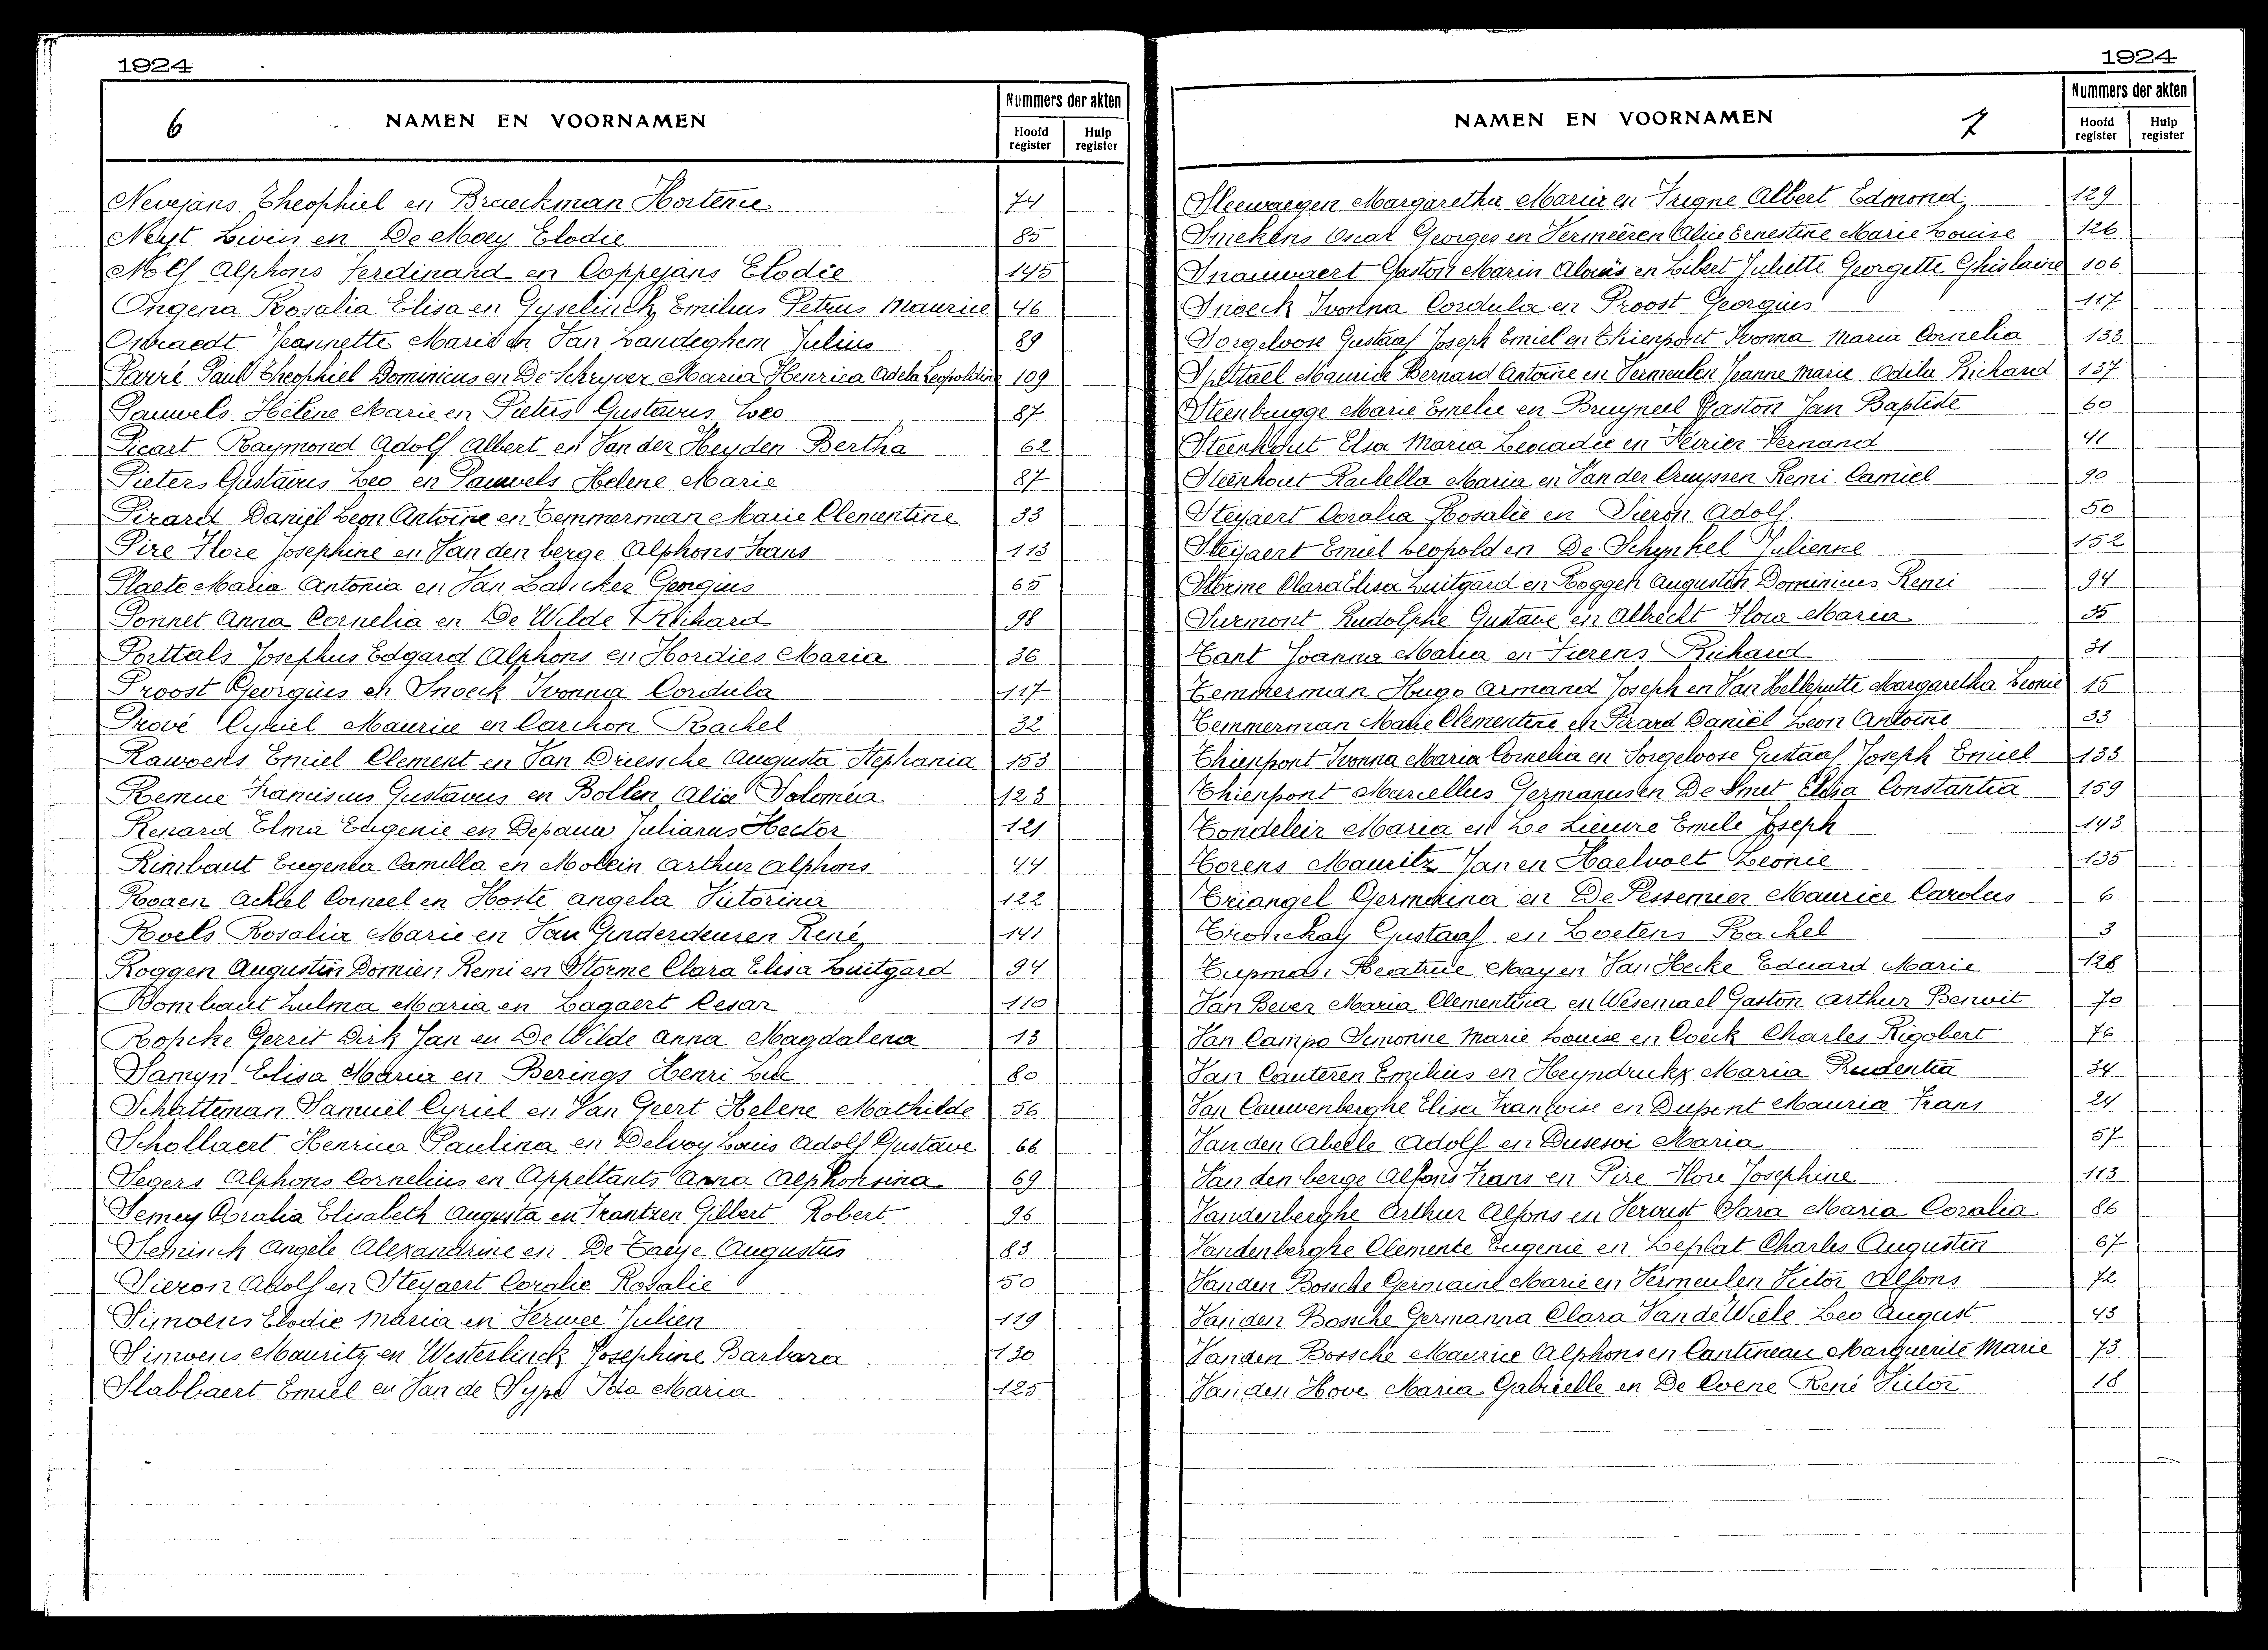 1924
6 NAMEN EN VOORNAMEN
Nummers der akten
Hoofd register Hulp register
Nevejans Theophiel en Braeckman Hortence 74
Neyt Livin en De Moey Elodie 85
Nolf Alphons Ferdinand en Coppejans Elodie 145
Ongena Rosalia Elisa en Gyselinck Emilius Petrus Maurice 46
Osbraedt Jeannette Marie en Van Landeghem Julius 89
Parré Paul Theophiel Dominicus en De Schryver Maria Henrica Adela Leopoldine 109
Pauwels Hélène Marie en Pieters Gustavus Leo 87
Picart Raymond Adolf Albert en Van der Heyden Bertha 62
Pieters Gustavus Leo en Pauwels Helene Marie 87
Pirard Daniël Leon Antoine en Temmerman Marie Clementine 33
Pire Flore Josephine en Van den berge Alphons Frans 113
Plaete Maria Antonia en Van Georgius 65
Ponnet Anna Cornelia en De Wilde Richard 98
Porttals Josephus Edgard Alphons en Hordies Maria 36
Proost Georgius en Snoeck Ivonna Cordula 117
Prové Cyriel Maurice en Carchon Rachel 32
Rawoens Emiel Clement en Van Driessche Augusta Stephania 153
Remue Franciscus Gustavus en Bollen Alice Solomea 123
Renard Elma Eugenie en Depauw Julianus Hector 121
Rimbaut Eugenia Camilla en Molein Arthur Alphons 44
Rogen Achiel Corneel en Hoste Angela Victorina 122
Roels Rosalia Marie en Van Ginderdeuren René 141
Roggen Augustin Domien Remi en Storme Clara Elisa Luitgard 94
Rombaut Zulma Maria en Lagaert Cesar 110
Ropcke Gerrit Dirk Jan en De Wilde Anna Magdalena 13
Samyn Elisa Maria en Berings Henri Luc 80
Schatteman Samuël Cyriel en Van Geert Helene Mathilde 56
Schollaert Henrica Paulina en Delvoy Louis Adolf Gustave 66
Segers Alphons Cornelius en Appeltants Anna Alphonsina 69
Semey Coralia Elisabeth Augusta en Frantzen Gilbert Robert 96
Seminck Angèle Alexandrine en De Taeye Augustus 83
Sieron Adolf en Steyaert Coralie Rosalie 50
Simoens Elodie Maria en Verwee Julien 119
Simoens Mauritz en Westerlinck Josephine Barbara 130
Slabbaert Emiel en Van de Sype Ida Maria 125
1924
NAMEN EN VOORNAMEN 7
Nummers der akten
Hoofd register Hulp register
Sleewaegen Margaretha Maria en Trigne Albert Edmond 129
Smekens Oscar Georges en Vermeiren Alice Ernestine Marie Louise 126
Snauwaert Gaston Marin Aloïs en Libert Juliette Georgette Ghislaine 106
Snoeck Ivonna Cordula en Proost Georgius 117
Sorgeloose Gustaaf Joseph Emiel en Thienpont Ivonna Maria Cornelia 133
Spittael Maurice Bernard Antoine en Vermeulen Jeanne Marie Odila Richard 137
Steenbrugge Marie Emelie en Bruyneel Gaston Jan Baptiste 60
Steenhout Elsa Maria Leocadie en Heirier Fernand 41
Steenhout Rachella Maria en Van der Cruyssen Remi Camiel 90
Steyaert Coralia Rosalie en Sieron Adolf 50
Steyaert Emiel Leopold en De Schynkel Julienne 152
Storme Clara Elisa Luitgard en Roggen Augustin Dominicus Remi 94
Surmont Rudolphe Gustave en Albrecht Flora Maria 35
Tant Joanna Maria en Fierens Richard 31
Temmerman Hugo Armand Joseph en Van Helleputte Margaretha Leonie 15
Temmerman Marie Clementine en Pirard Daniël Leon Antoine 33
Thienpont Ivonna Maria Cornelia en Sorgeloose Gustaaf Joseph Emiel 133
Thienpont Marcellus Germanus en De Smet Elisa Constantia 159
Tondeleir Maria en De Lieuvre Emile Joseph 143
Torens Mauritz Jan en Haelvoet Leonie 135
Triangel Germaina en De Pessemier Maurice Carolus 6
Gustaaf en Loetens Rachel 3
Tupman Beatrice May en Van Hecke Eduard Marie 128
Van Bever Maria Clementina en Wesemael Gaston Arthur Benoit 70
Van Campo Simonne Marie Louise en Coeck Charles Rigobert 76
Van Cauteren Emilius en Heyndrickx Maria Prudentia 34
Van Cauwenberghe Elisa Françoise en Dupont Maurice Frans 24
Van den Abeele Adolf en Dusesoi Maria 57
Van den berge Alfons Frans en Pire Flore Josephine 113
Vandenberghe Arthur Alfons en Vervust Clara Maria Coralia 86
Vandenberghe Clemente Eugenie en Leplat Charles Augustin 67
Van den Bossche Germaine Marie en Vermeulen Victor Alfons 72
Van den Bossche Germanna Clara Van de Wiele Leo August 43
Van den Bossche Maurice Alphons en Cantineau Marguerite Marie 73
Van den Hove Maria Gabrielle en De Coene René Victor 18